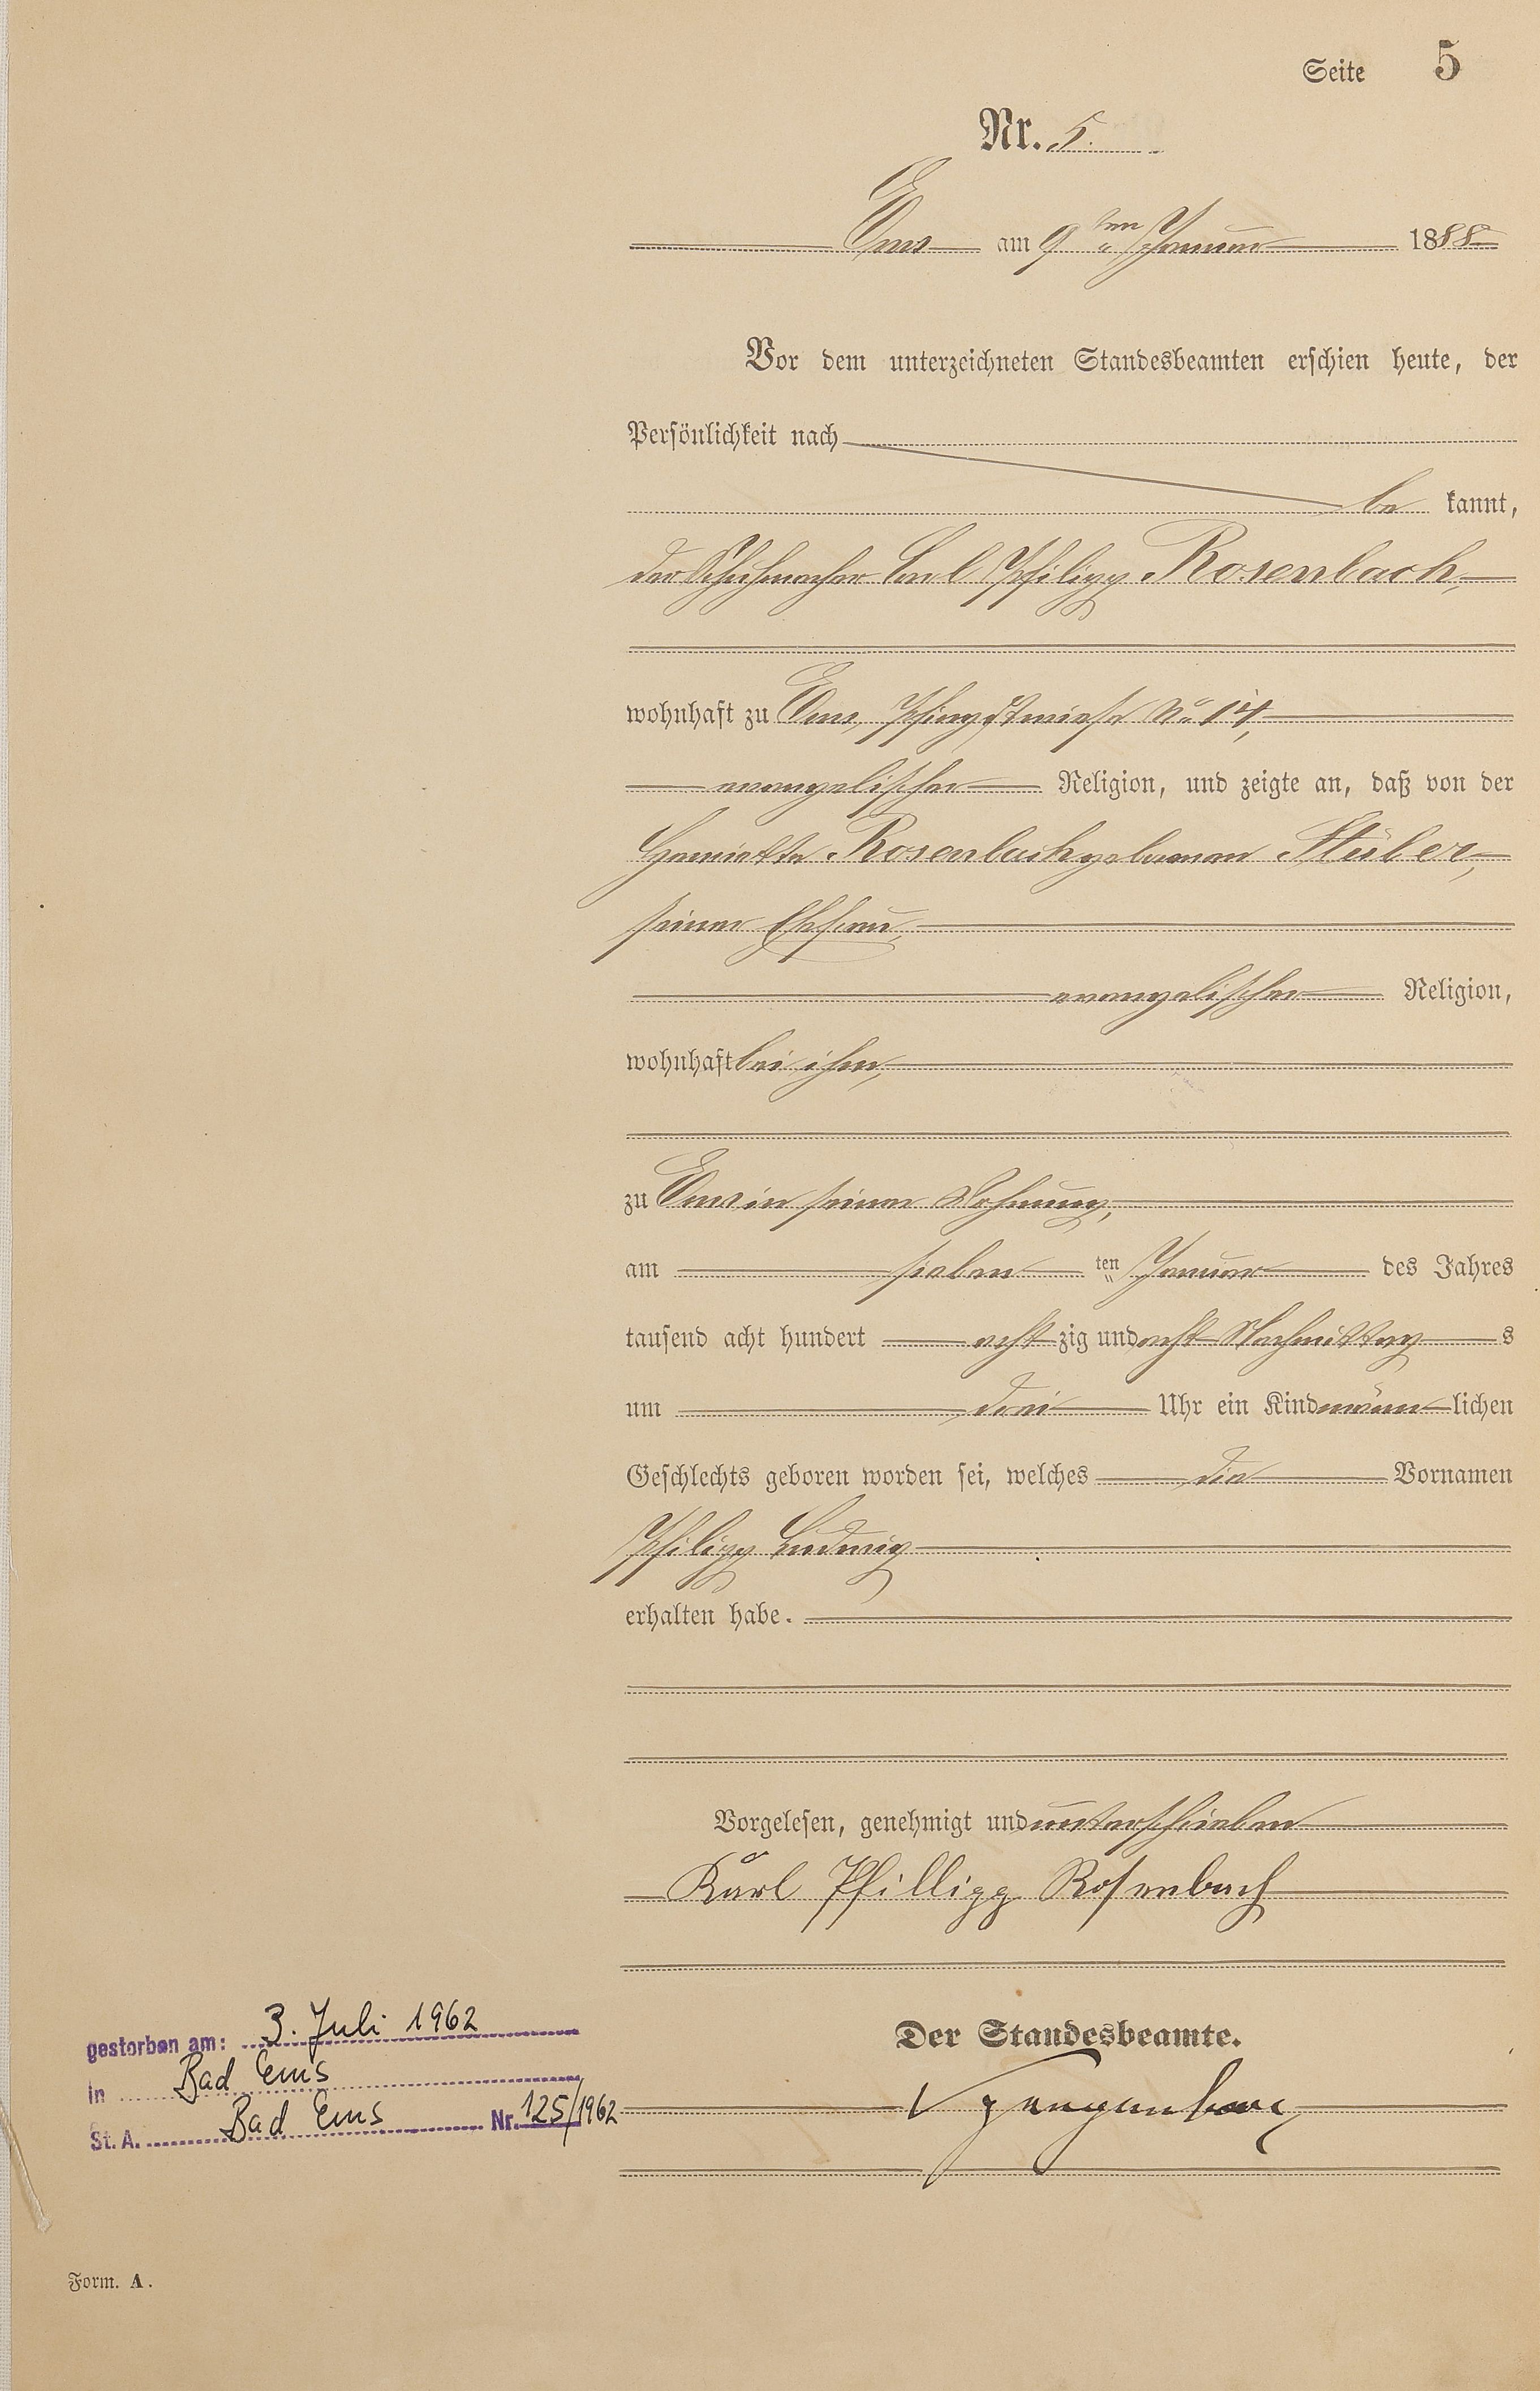 Seite 5
Nr. 5.
Ems am 9ten Januar 1888
Vor dem unterzeichneten Standesbeamten erschien heute, der
Persönlichkeit nach
be kannt,
der Schuhmacher Carl Philipp Rosenbach,
wohnhaft zu Ems, Pfingstwiese No 14,
evangelischer Religion, und zeigte an, daß von der
Henriette Rosenbach geborenen Stüber,
seiner Ehefrau,
evangelischer Religion,
wohnhaft bei ihm,
zu Ems in seiner Wohnung,
am sieben ten Januar des Jahres
tausend acht hundert acht zig und acht Nachmittag s
um drei Uhr ein Kind männ lichen
Geschlechts geboren worden sei, welches die Vornamen
Philipp Ludwig
erhalten habe.
Vorgelesen, genehmigt und unterschrieben
Karl Phillipp Rosenbach
Der Standesbeamte.
gestorben am: 3. Juli 1962
in Bad Ems
St. A. Bad Ems Nr. 125/1962
Form. A.